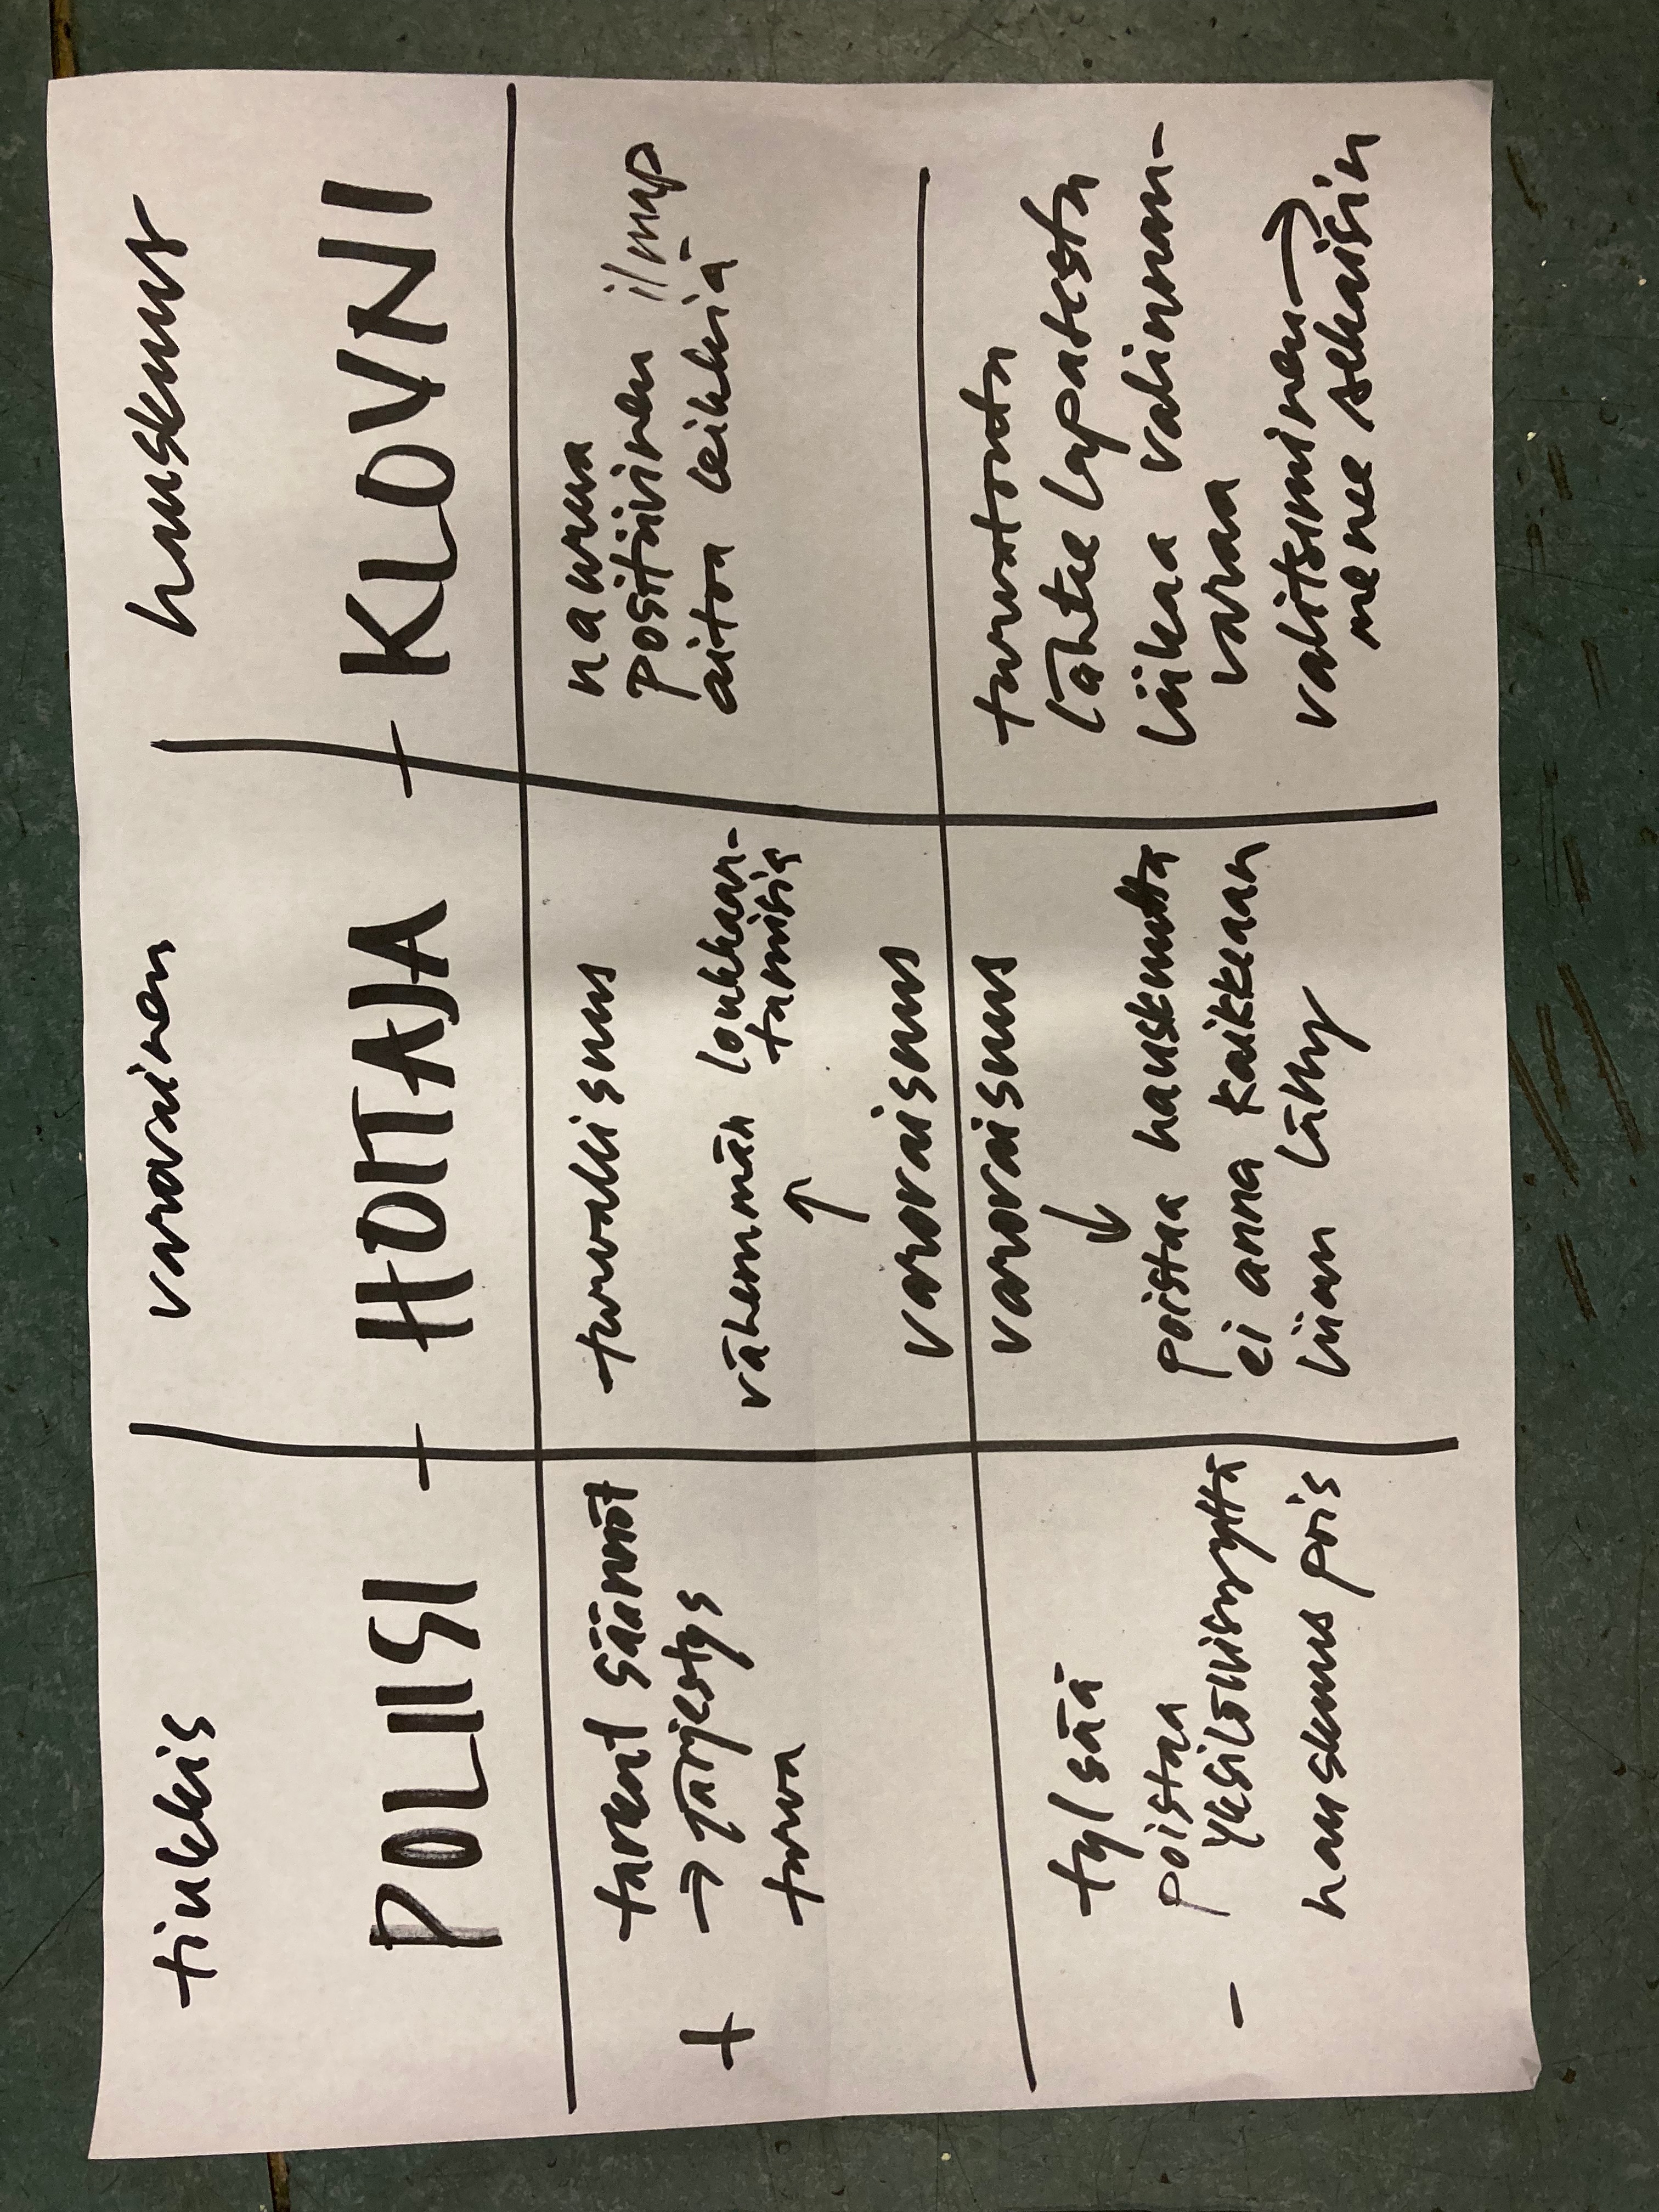 tiukkis
varovainen
hauskuus
POLIISI - HOITAJA - KLOVNI
+
tarkat säännöt
→ järjestys
turva
turvallisuus
vähemmän loukkaan-
tumisia
↑
varovaisuus
naurua
positiivinen ilmap
aitoa leikkiä
-
tylsää
poistaa
yksilöllisyyttä
hauskuus pois
varovaisuus
↓
poistaa hauskuutta
ei anna
liian lähy
turvatonta
lähtee lapasesta
liikaa valinnan-
varaa
valitsuminen →
menee sekaisin